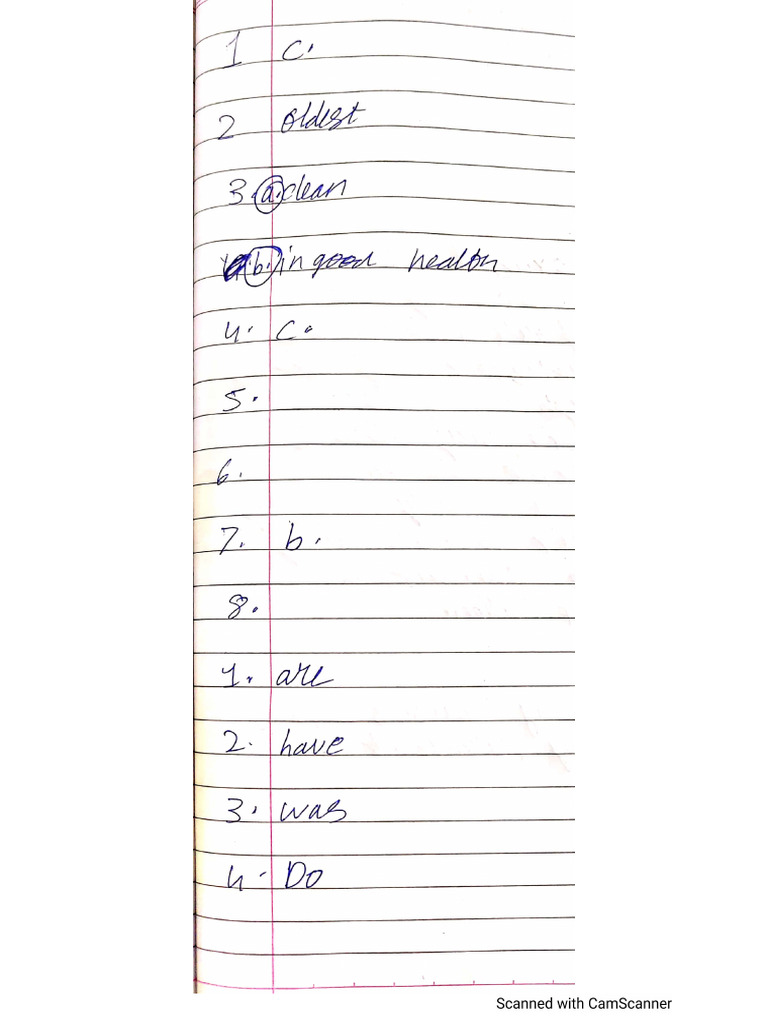 1 c.
2 oldest
3. a. clean
b. in good health
4. c.
5.
6.
7. b.
8.
1. are
2. have
3. was
4. Do
Scanned with CamScanner